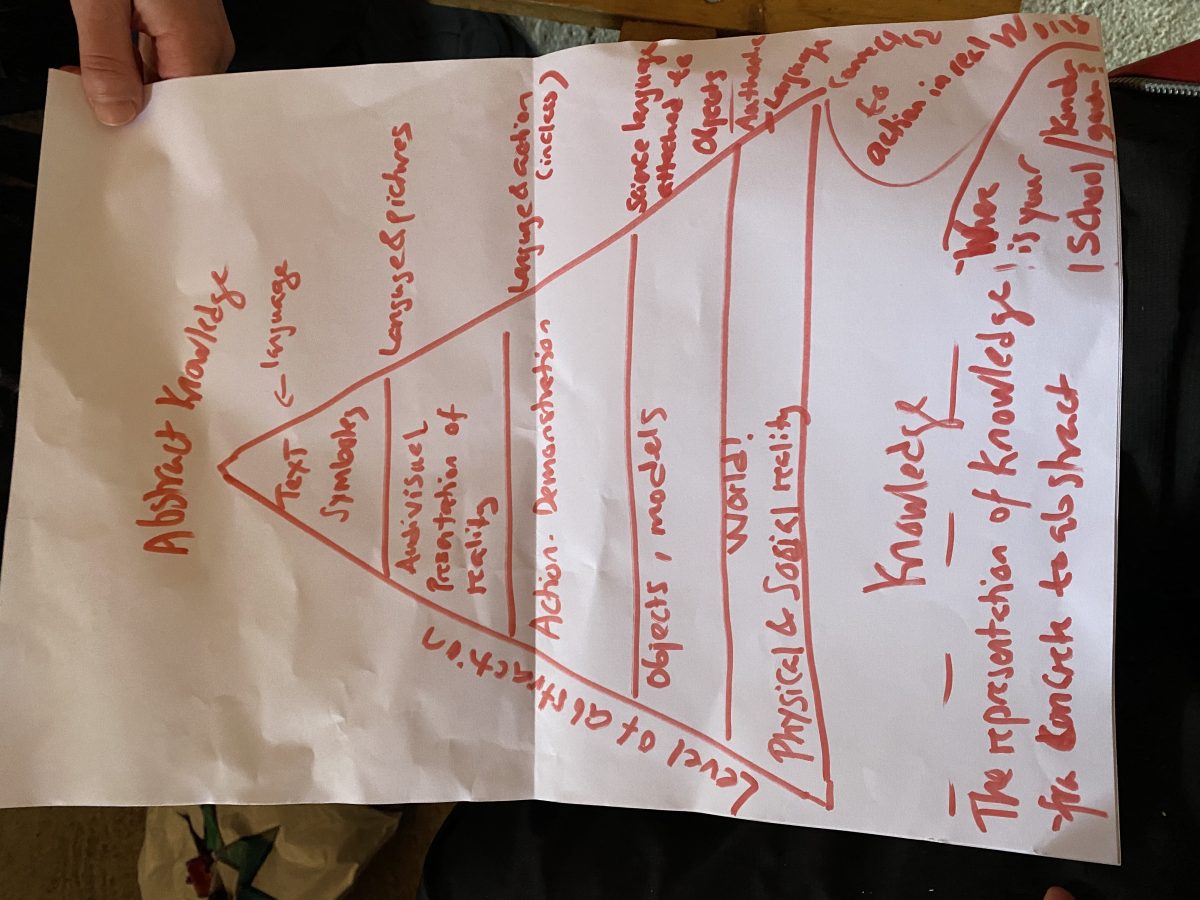 Abstract Knowledge
← language
Text
Symboles
Language & pichres
Audivisuel
Presentation of
reality
Language & action
(incless)
Action. Demonstration
Level of abstraction
Science language
attached to
Objects
Objects, models
Authentic
Language
World!
Physical & Social reality
to
action in real
Knowledge
The representation of Knowledge
-fra Koncrete to abstract
-Where
is your
School/Kinder
garten?